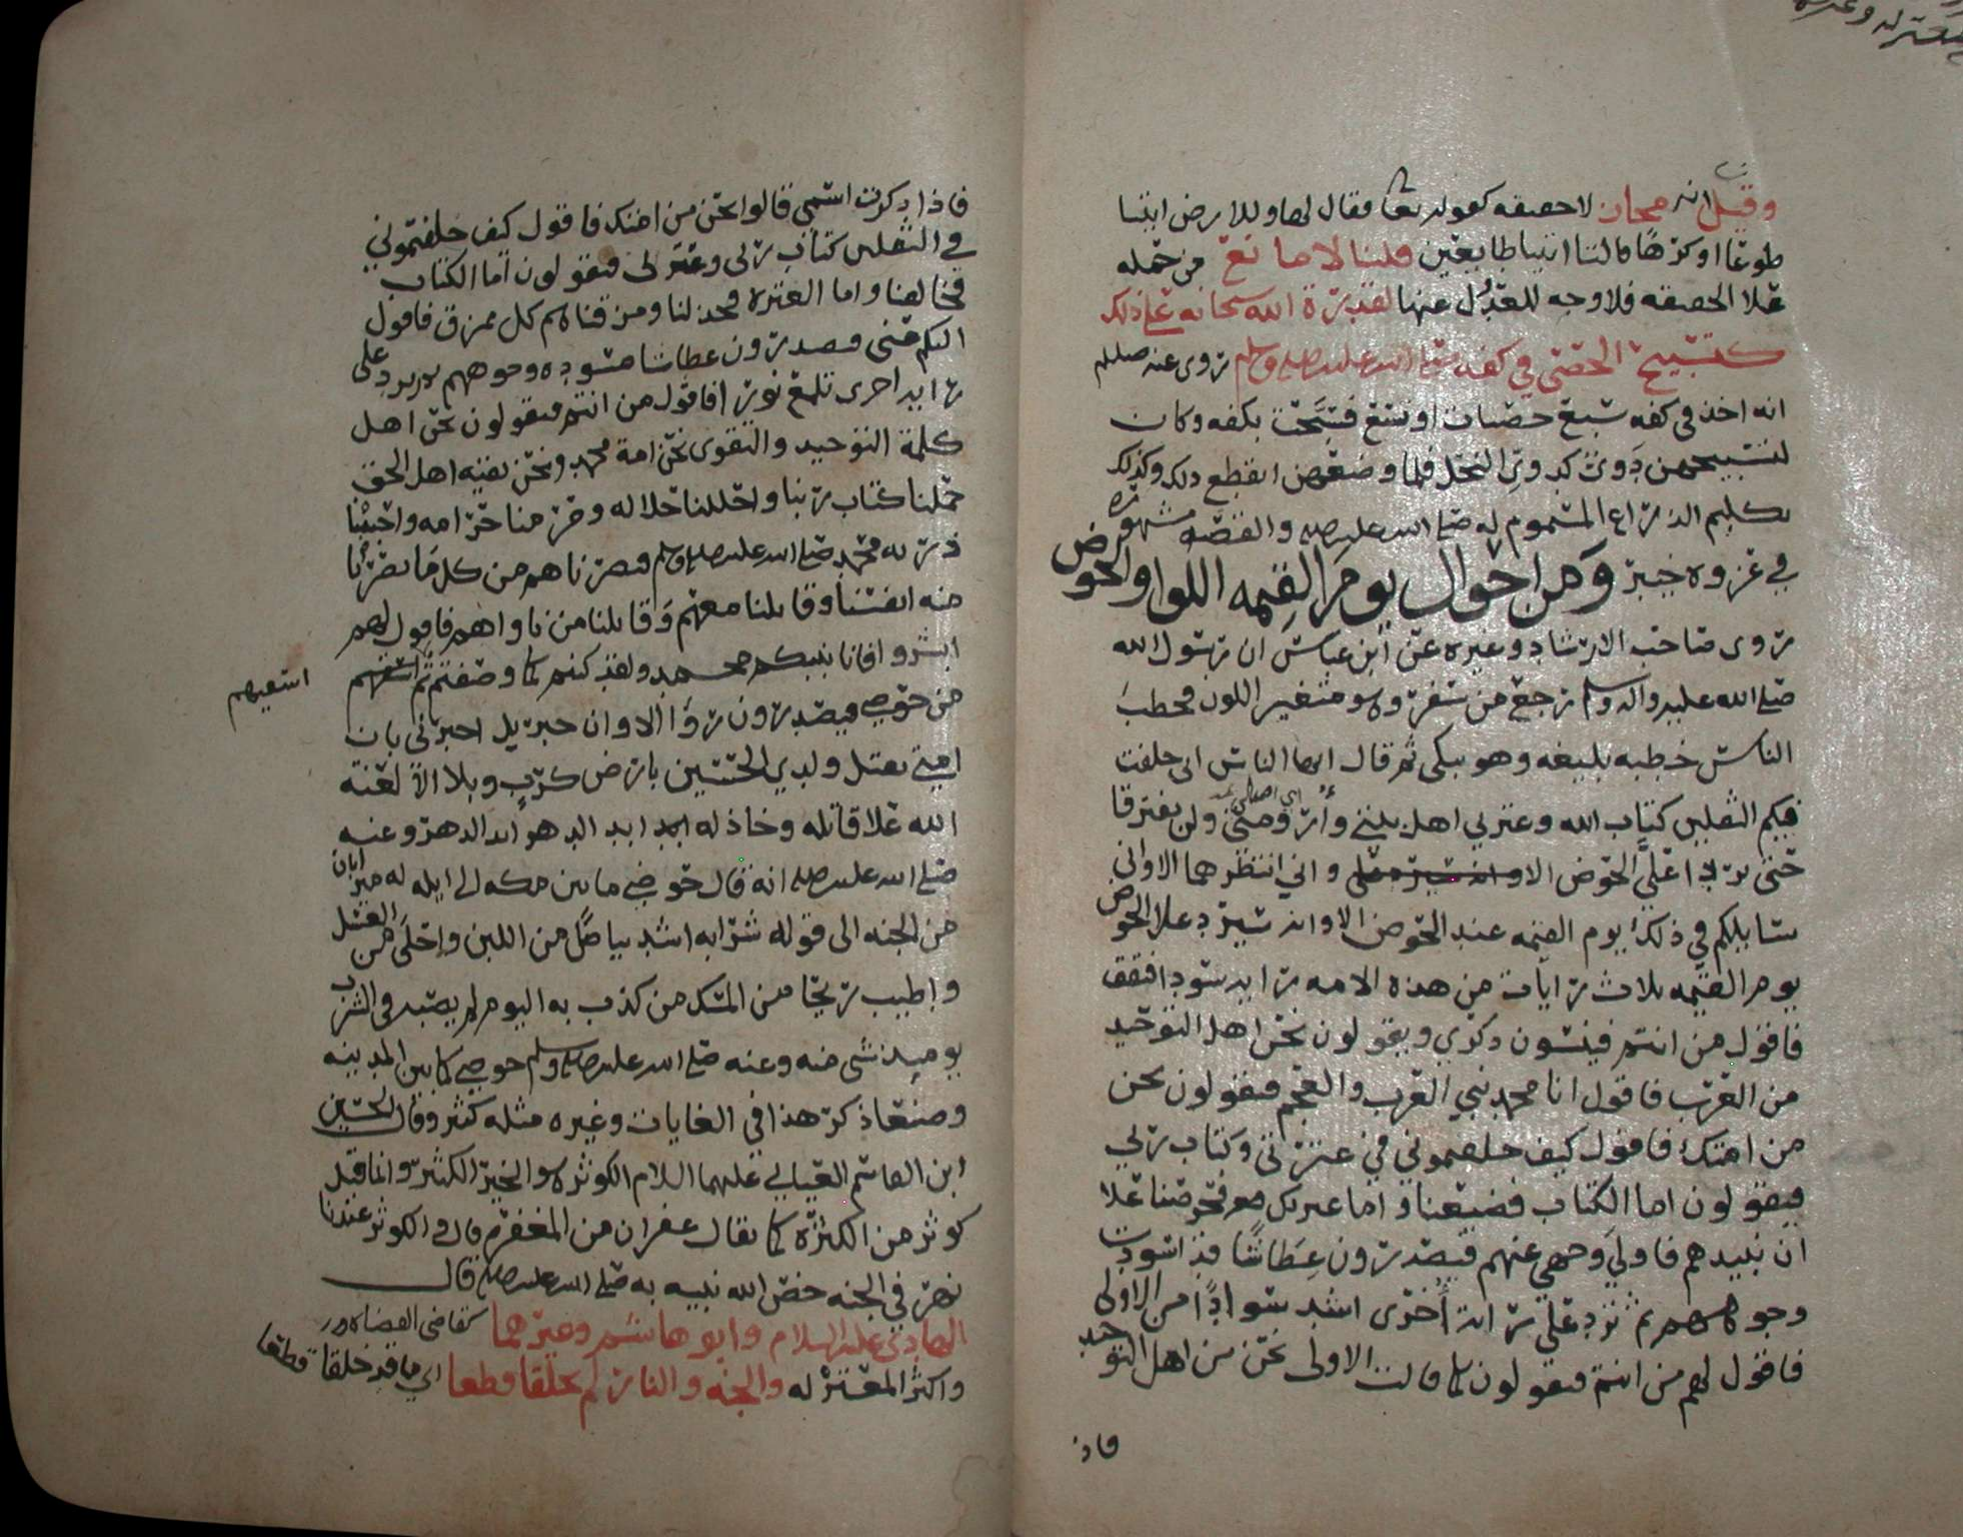 وقيل انه مجاز لا حقيقة كقوله تعا فقال لها وللارض ايتيا
طوعا او كرها قالتا اتينا طايعين قلنا لا مانع من حمله
علا الحقيقه فلا وجه للعدول عنها لقدرة الله سبحانه على ذلك
كتسبيح الحصى في كفه صلى الله عليه وسلم روى عنه صللم
انه اخذ في كفه سبع حصيات او تسع فسبحت بكفه وكان
لتسبيحهن دوي كدوي النحل فلما وضعهن انقطع ذلك وكذلك
تكليم الذراع المسموم له صلى الله عليه والقصه مشهوره
في غزوه خيبر ومن احوال يوم القيمه اللوا والحوض
روى صاحب الارشاد وغيره عن ابن عباس ان رسول الله
صلى الله عليه واله وسلم رجع من سفر وهو متغير اللون فخطب
الناس خطبه بليغه وهو يبكى ثم قال ايها الناس انى خلفت
فيكم الثقلين كتاب الله وعترتي اهل بيتي وارومتى ولن يفترقا
حتى يردا على الحوض الا واني انتظرهما الا واني
سايلكم في ذلك يوم القيمه عند الحوض الا وانه سيرد علا الحوض
يوم القيمه ثلاث رايات من هذه الامه رايه سودا فتقف
فاقول من انتم فينسون ذكري ويقولون نحن اهل التوحيد
من العرب فاقول انا محمد نبي العرب والعجم فيقولون نحن
من امتك فاقول كيف خلفتموني في عترتى وكتاب ربي
فيقولون اما الكتاب فضيعنا واما عترتك فحرصنا علا
ان نبيدهم فاولي وجهي عنهم فيصدرون عطاشا قد اسودت
وجوههم ثم ترد علي راية أخرى اشد سوادا من الاولى
فاقول لهم من انتم فيقولون كما قالت الاولى نحن من اهل التوحيد
فاذ
فاذا ذكرت اسمي قالوا نحن من امتك فاقول كيف خلفتموني
في الثقلين كتاب ربى وعترتى فيقولون اما الكتاب
فخالفنا واما العتره فخذلنا ومزقناهم كل ممزق فاقول
اليكم عني فيصدرون عطاشا مسوده وجوههم ثم ترد على
رايه اخرى تلمع نورا فاقول من انتم فيقولون نحن اهل
كلمة التوحيد والتقوى نحن امة محمد ونحن بقيه اهل الحق
حملنا كتاب ربنا واحللنا حلاله وحرمنا حرامه واحببنا
ذريه محمد صلى الله عليه وسلم فنصرناهم من كل ما نصرنا
منه انفسنا وقاتلنا معهم وقاتلنا من ناواهم فاقول لهم
ابشروا فانا نبيكم محمد ولقد كنتم كما وصفتم ثم اسقيهم
اسقيهم
من حوضي فيصدرون روا الا وان جبريل اخبرنى بان
امتي تقتل ولدي الحسين بارض كرب وبلا الا لعنة
الله علا قاتله وخاذله ابد الدهر وعنه
صلى الله عليه انه قال حوضي ما بين مكه الى ايله له ميزابان
من الجنه الى قوله شرابه اشد بياضا من اللبن واحلى من العسل
واطيب ريحا من المسك من كذب به اليوم لم يصبه في الشرب
يوميذ شى منه وعنه صلى الله عليه وسلم حوضي كما بين المدينه
وصنعا ذكر هذا في الغايات وغيره مثله كثر وقال الحسين
ابن القاسم العياني عليهما السلام الكوثر هو الخير الكثير وانما قيل
كوثر من الكثرة كما يقال غفران من المغفره قال والكوثر عندنا
نهر في الجنه خص الله نبيه به صلى الله عليه قال
الهادي عليه السلام وابو هاشم وغيرهما كقاضي القضاه
واكثر المعتزله والجنه والنار لم يخلقا قطعا اي ما قد خلقا قطعا